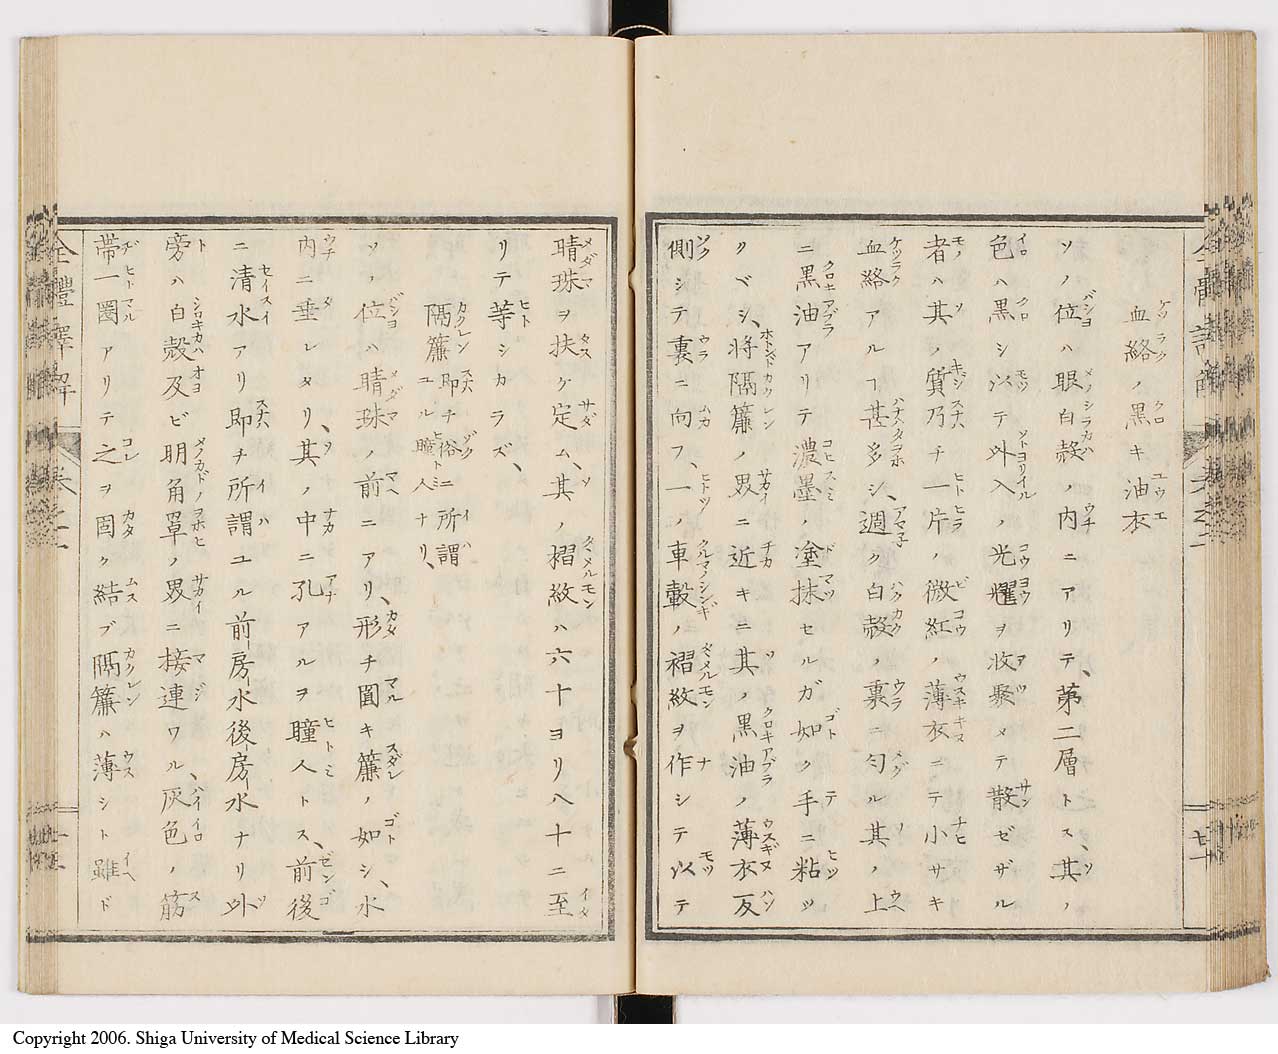 血絡ノ黒キ油衣
ソノ位ハ眼白殻ノ内ニアリテ、第二層トス、其ノ
色ハ黒シ以テ外入ノ光耀ヲ收聚メテ散ゼザル
者ハ其ノ質乃チ一片ノ微紅ノ薄衣ニテ小サキ
血絡アルヿ甚多シ、週ク白殻ノ裏ニ匀ル其ノ上
ニ黒油アリテ濃墨ノ塗抹セルガ如ク手ニ粘ツ
クベシ、将隔簾ノ界ニ近キニ其ノ黒油ノ薄衣反
側シテ裏ニ向フ、一ノ車轂ノ褶紋ヲ作シテ以テ
睛珠ヲ扶ケ定ム、其ノ褶紋ハ六十ヨリ八十ニ至
リテ等シカラズ、
隔簾 即チ俗ニ所謂
ユル瞳人ナリ、
ソノ位ハ睛珠ノ前ニアリ、形チ圓キ簾ノ如シ、水
内ニ垂レタリ、其ノ中ニ孔アルヲ瞳人トス、前後
ニ清水アリ即チ所謂ユル前房水後房水ナリ外
旁ハ白殻及ビ明角罩ノ界ニ接連ワル、灰色ノ筋
帶一圏アリテ之ヲ固ク結ブ隔簾ハ薄シト雖ド
全體譯解 卷之二
Copyright 2006. Shiga University of Medical Science Library